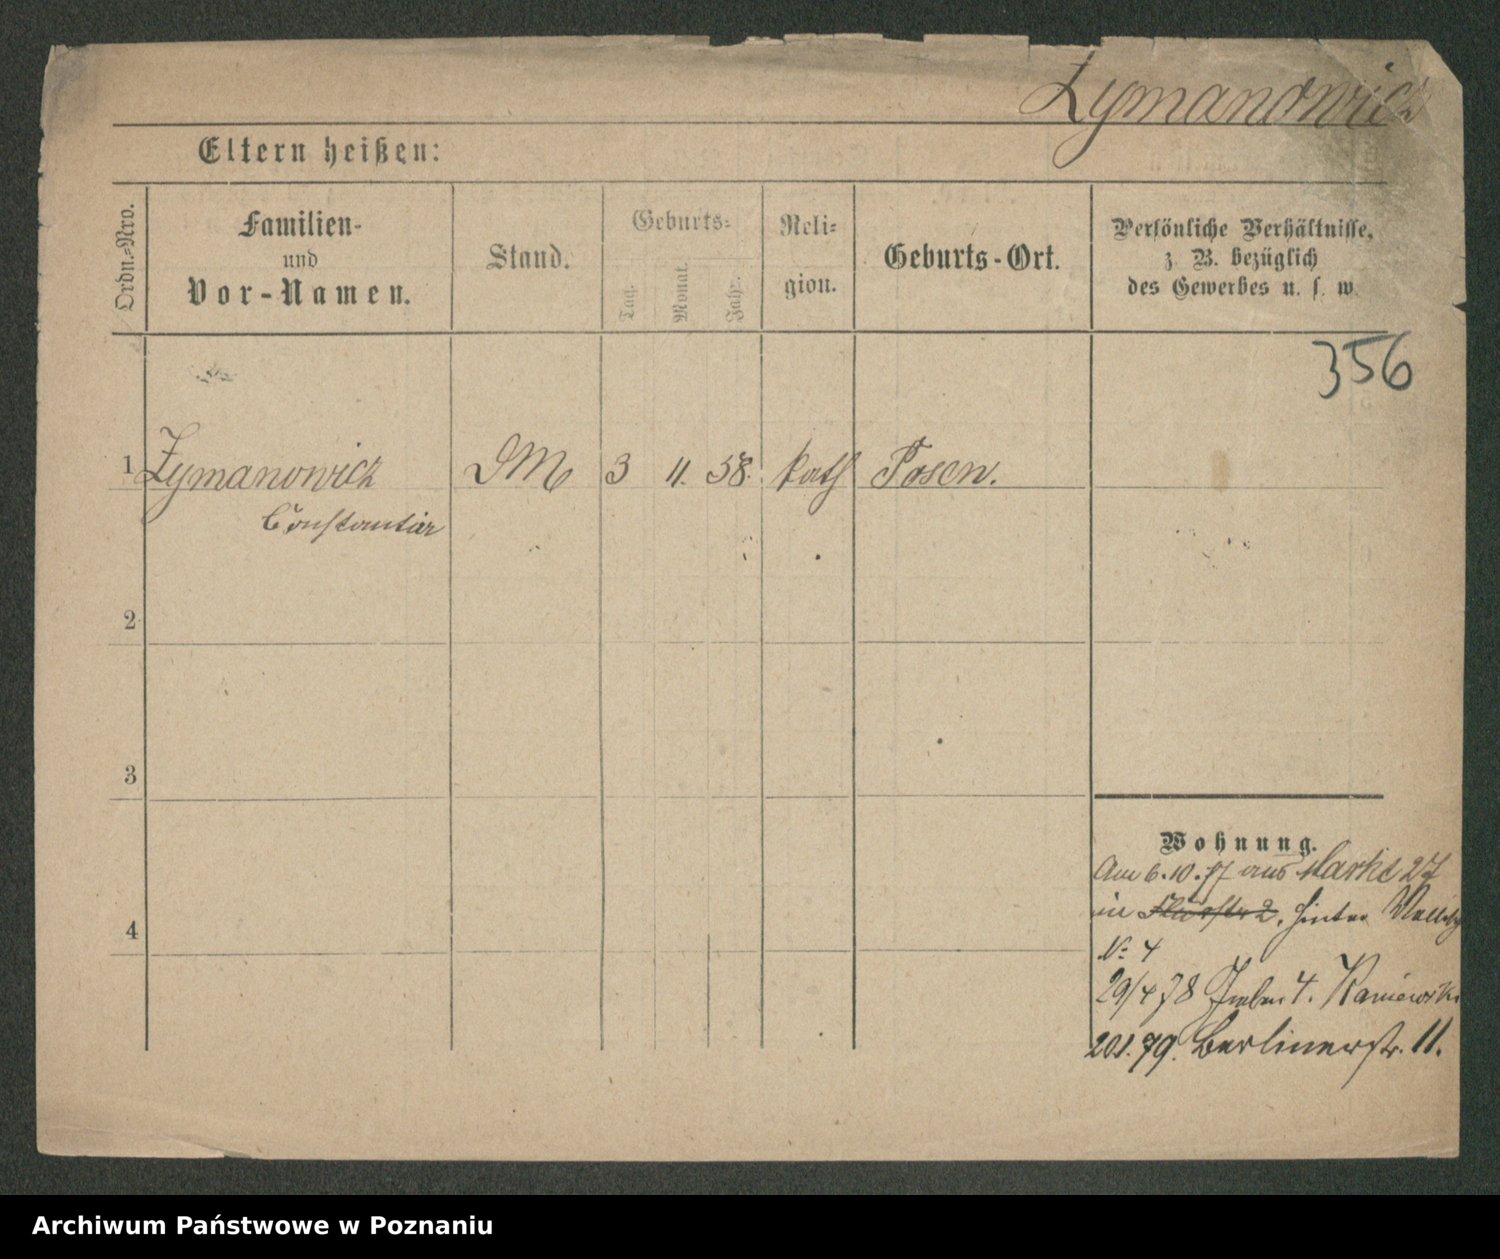 Zymanowicz
Eltern heißen:
Ordn.-Nro.
Familien-
und
Vor-Namen.
Stand.
Geburts-
Tag.
Monat.
Jahr.
Reli-
gion.
Geburts-Ort.
Persönliche Verhältnisse,
z. B. bezüglich
des Gewerbes u. s. w.
356
1 Zymanowicz DM 3 11. 58. kath Posen.
Constantia
2
3
4
Wohnung.
Am 6.10.77 aus Markt 27
in hinter Wallischei
No 4
29/4 78 4. Kaniewski
79. Berlinerstr. 11.
Archiwum Państwowe w Poznaniu